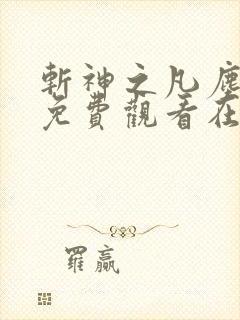 斬神之凡塵
免費觀看在
羅贏